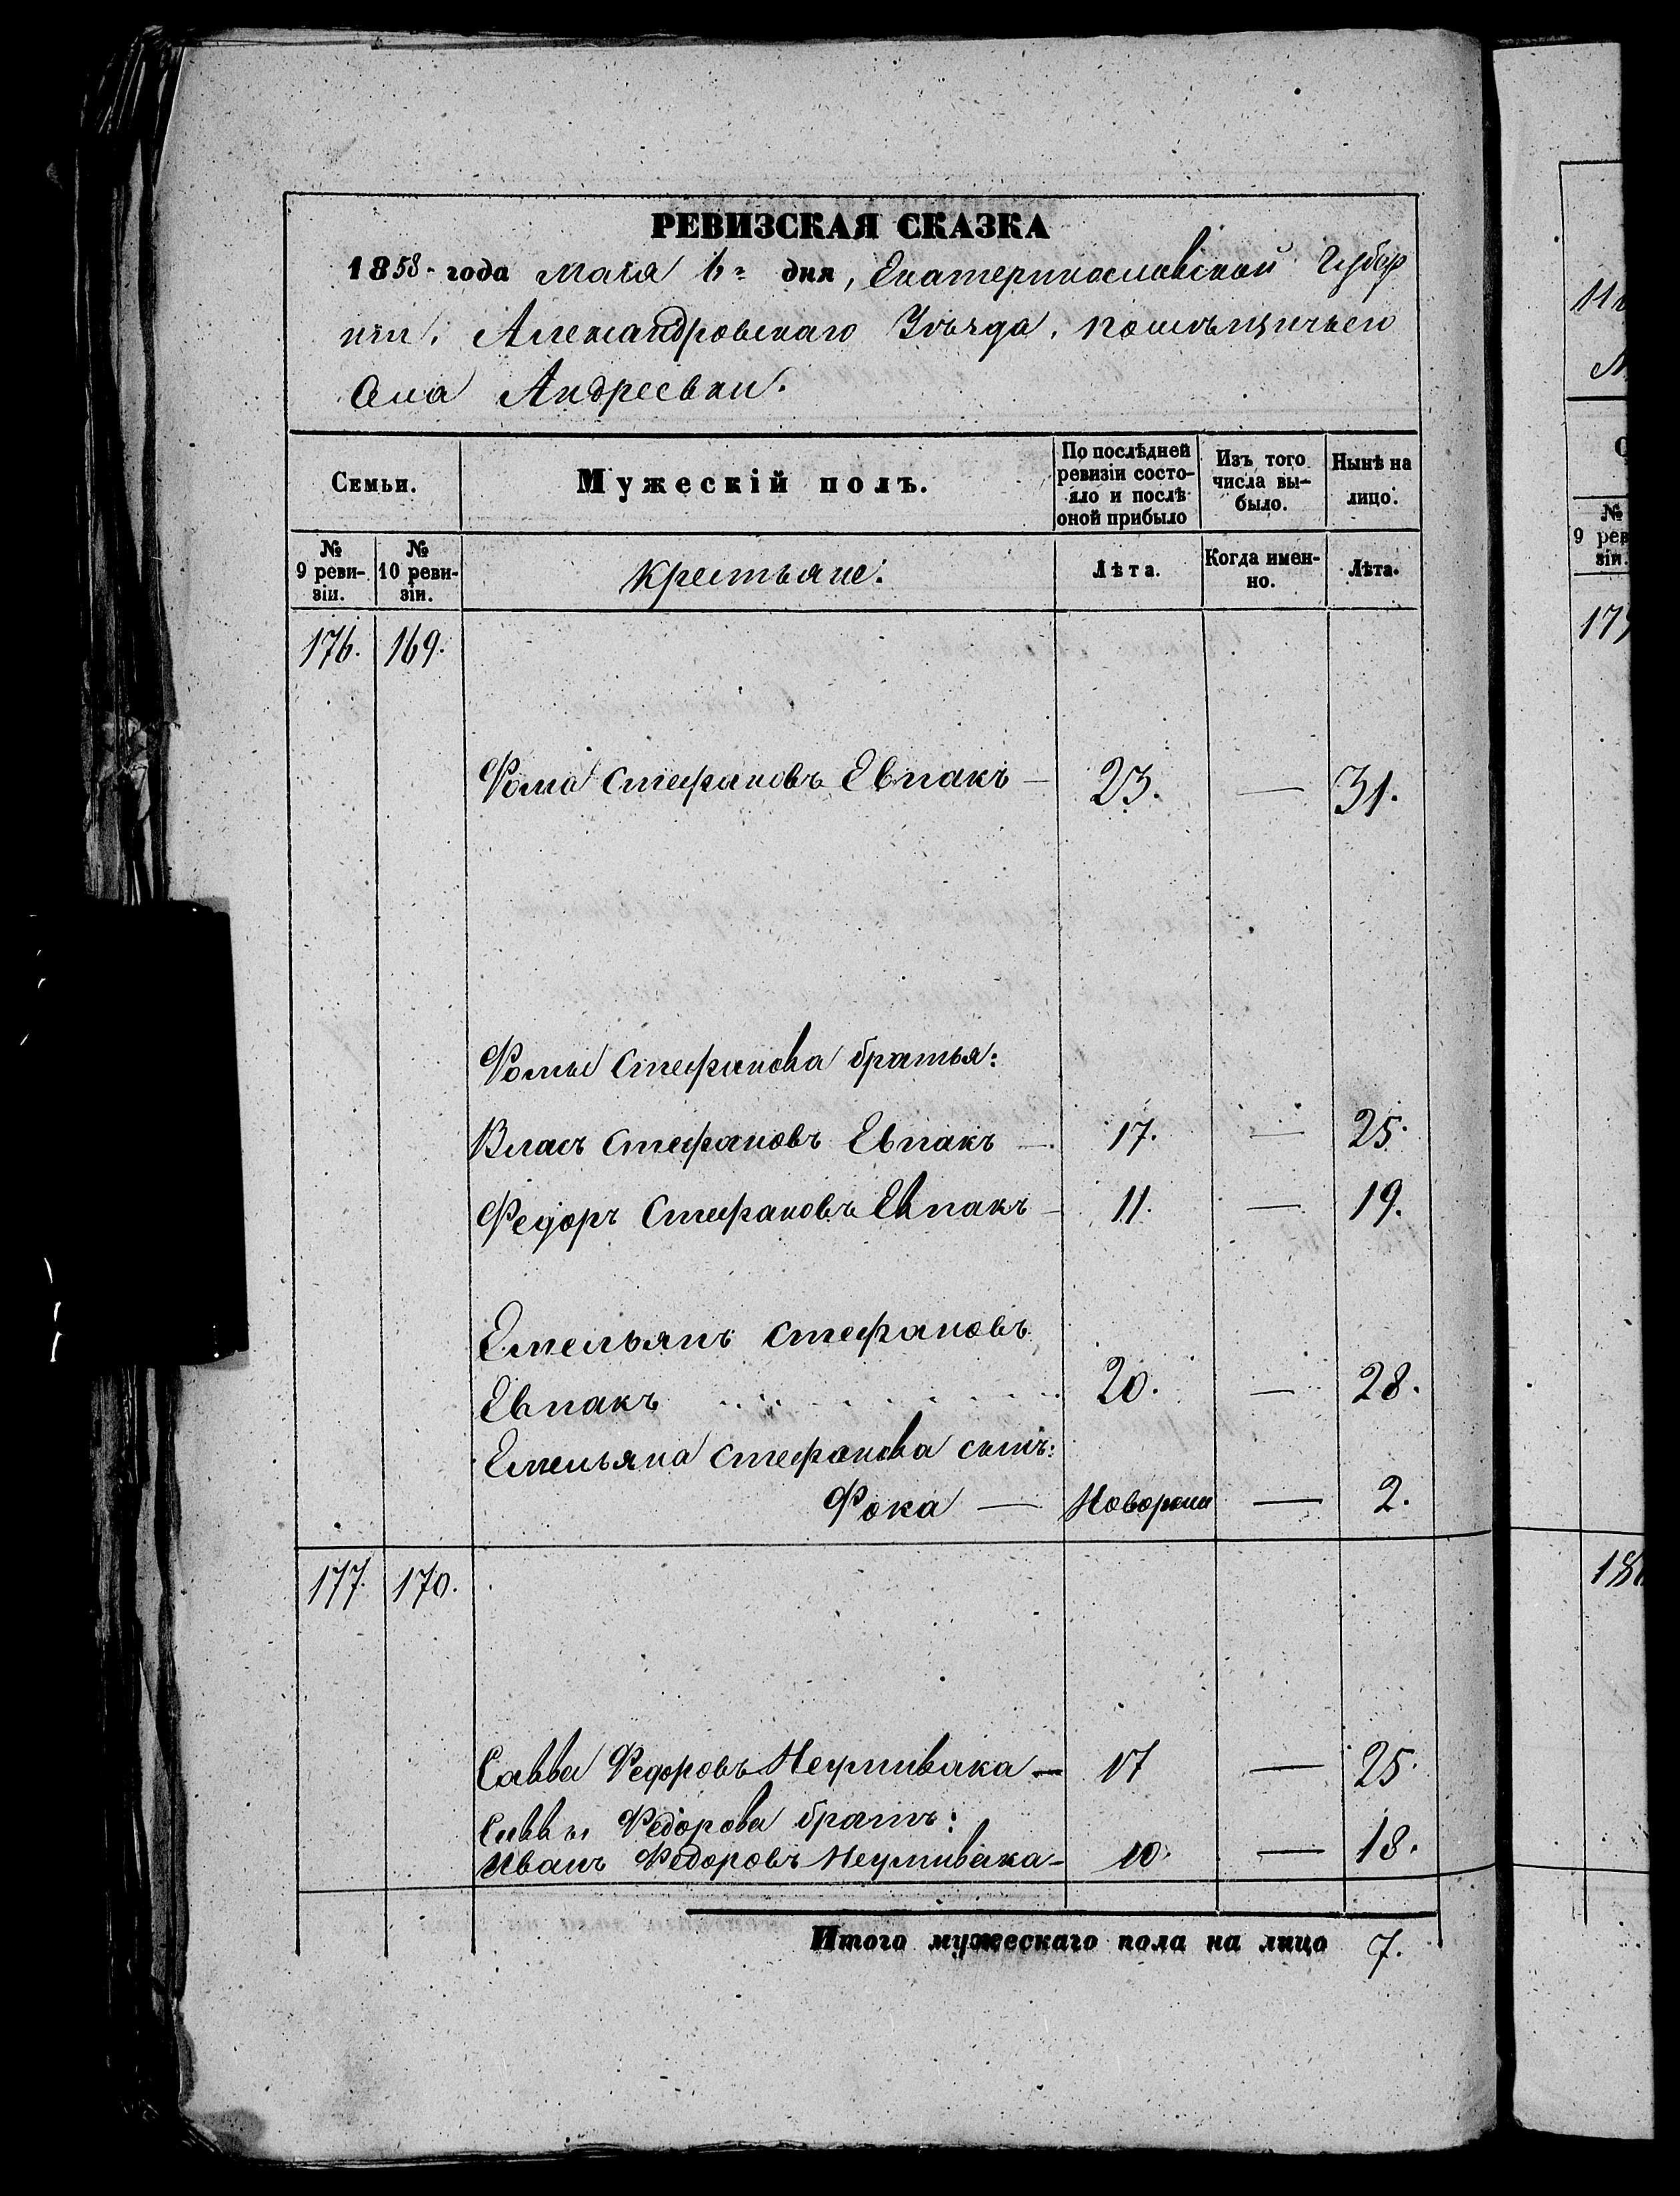 РЕВИЗСКАЯ СКАЗКА
1858 года Маія 6го дня, Екатеринославской Губер
ніи, Александровскаго Уѣзда, помѣщичьего
Села Андреевки.
Семьи.
Мужескій полъ.
По послѣдней ревизіи состояло и послѣ оной прибыло
Изъ того числа выбыло.
Нынѣ на лицо.
№ 9 ревизіи.
№ 10 ревизіи.
Крестьяне:
Лѣта.
Когда именно.
Лѣта.
176. 169.
Фома Стефановъ Евпакъ — 23. — 31.
Фомы Стефанова братья:
Власъ Стефановъ Евпакъ — 17. — 25.
Федоръ Стефановъ Евпакъ — 11. — 19.
Емельянъ Стефановъ
Евпакъ 20. — 28.
Емельяна Стефанова сынъ:
Фока — — 2.
177. 170.
Савва Федоровъ Неупивака — 17 — 25.
Саввы Федорова братъ:
Иванъ Федоровъ Неупивака — 10. — 18.
Итого мужескаго пола на лицо 7.
№
9 рев
зіи.